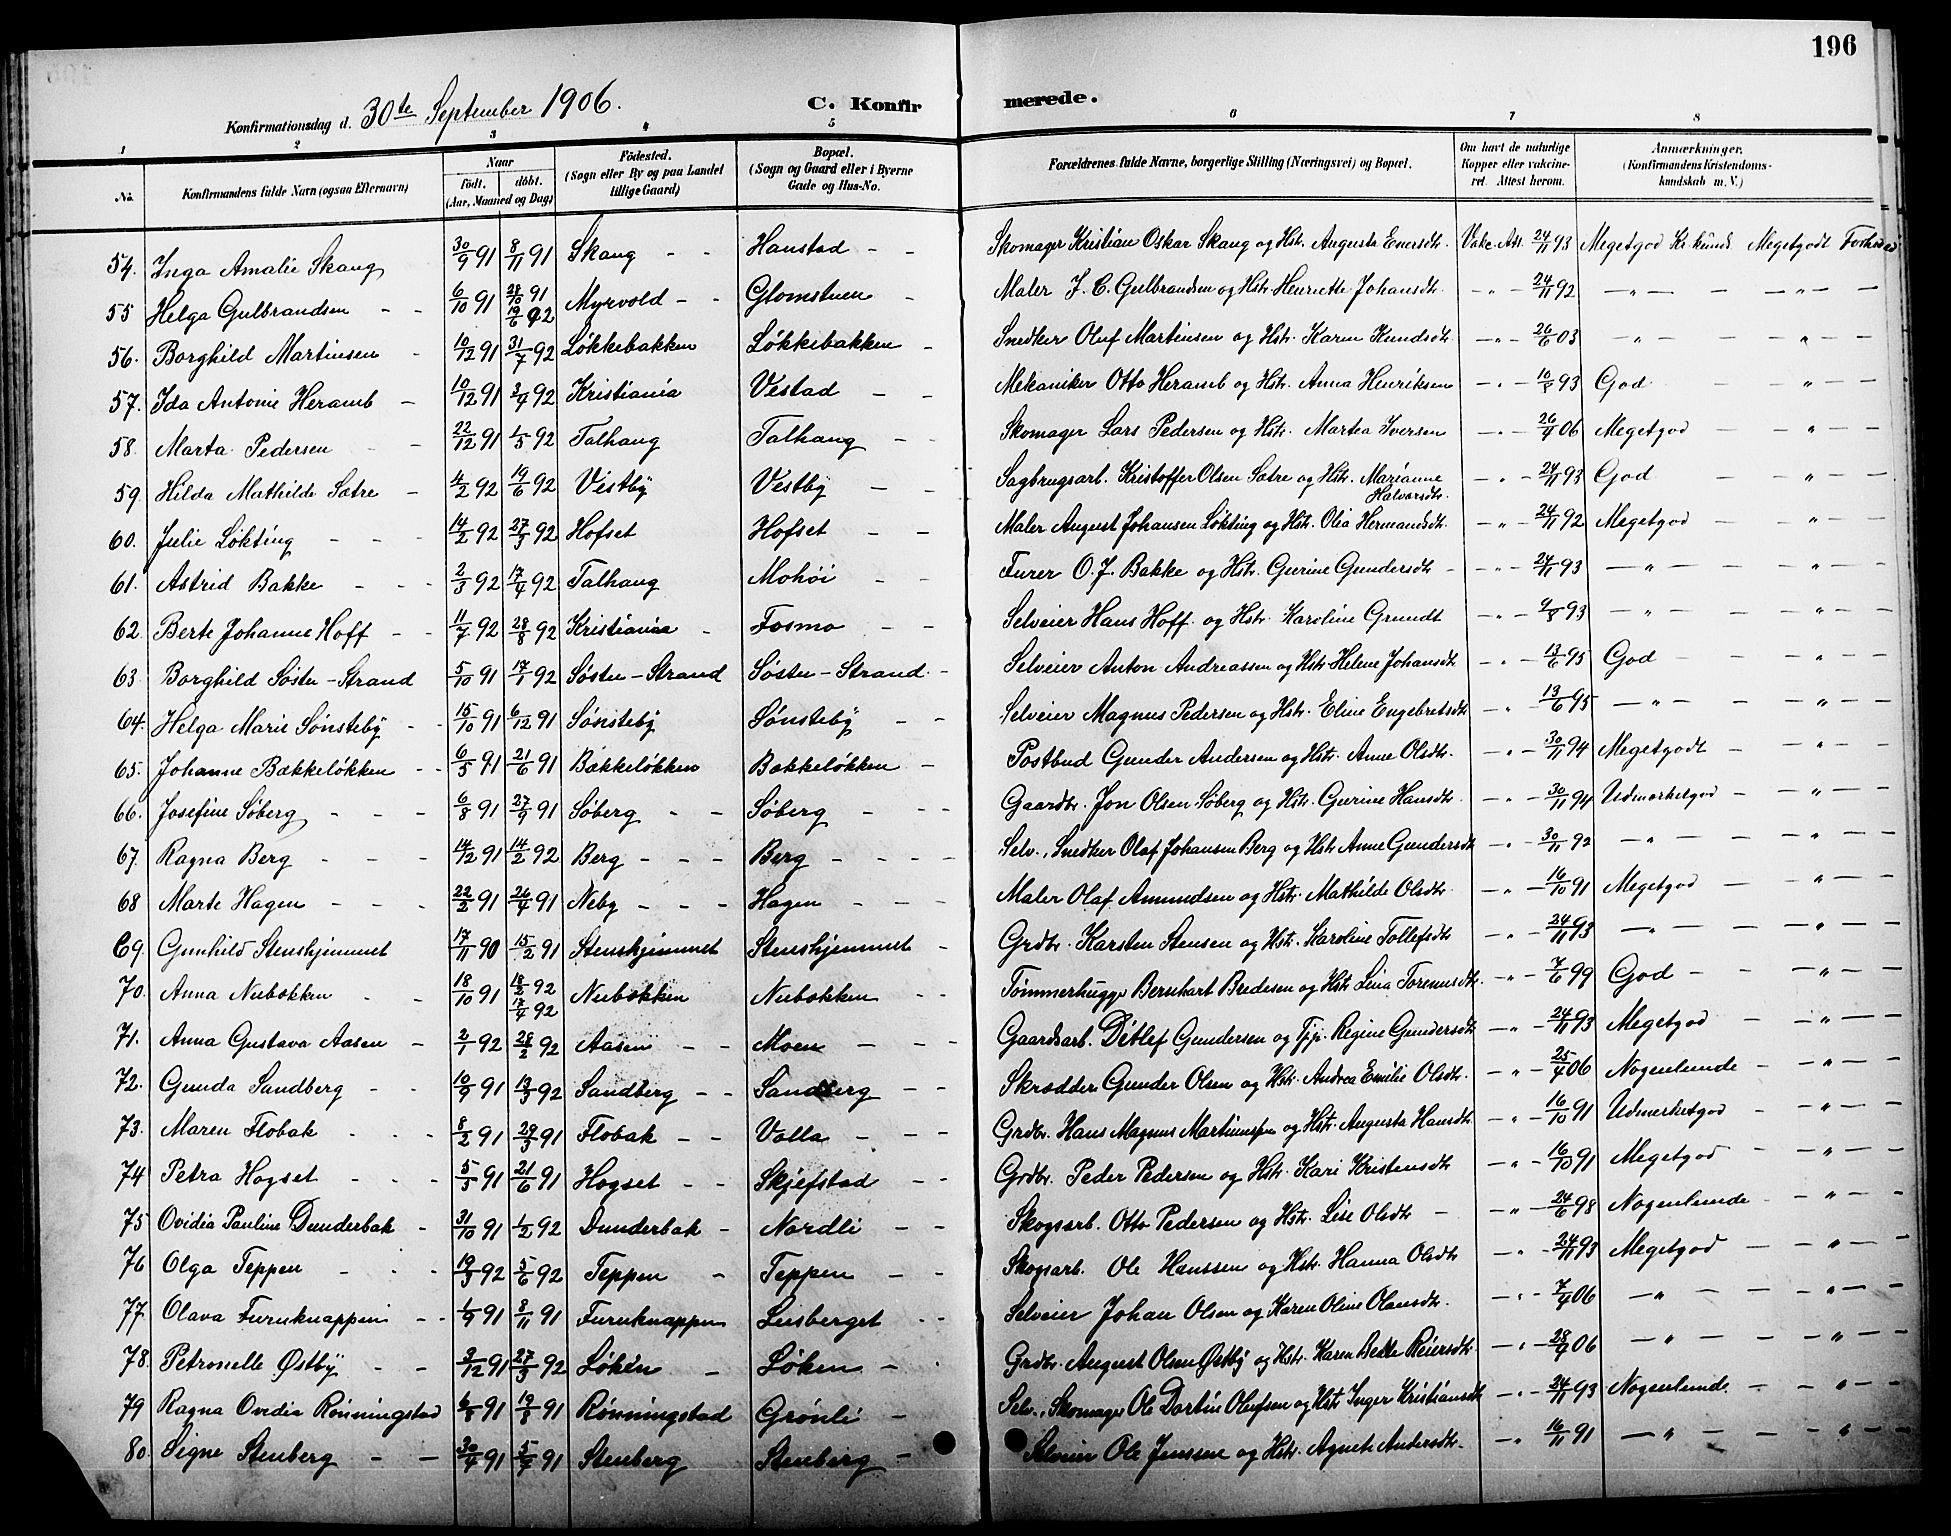 196
Konfirmationsdag d. 30te September 1906.
C. Konfirmerede.
1 2 3 4 5 6 7 8
No. Konfirmandens fulde Navn (ogsaa Efternavn) Naar født. døbt. (Aar, Maaned og Dag) Fødested. (Sogn eller By og paa Landet tillige Gaard) Bopæl. (Sogn og Gaard eller i Byerne Gade og Hus-No.) Forældrenes fulde Navne, borgerlige Stilling (Næringsvei) og Bopæl. Om havt de naturlige Kopper eller vaccineret. Attest herom. Anmærkninger. (Konfirmandens Kristendomskundskab m. V.)
54. Inga Amalie Skaug 30/9 91 8/11 91 Skaug - - Hanstad - - Skomager Kristian Oskar Skaug og Hstr. Augusta Enersdtr. Vakc. Att. 24/11 93 Megetgod Kr. kunds. Megetgodt Forhold
55 Helga Gulbrandsen - - 6/10 91 28/10 91 19/6 92 Myrvold - - Glomstuen - Maler J. C. Gulbrandsen og Hstr. Henriette Johansdtr. - " - 24/11 92 - " - - - " - -
56. Borghild Martinsen - 10/12 91 31/7 92 Løkkebakken Løkkebakken - Snedker Oluf Martinsen og Hstr. Karen Knudsdtr. - " - 26/6 03 - " - - " - -
57. Ida Antonie Heramb - 10/12 91 3/4 92 Kristiania Vestad - - Mekaniker Otto Heramb og Hstr. Anna Henriksen - " - 10/8 93 God - " - -
58. Marta Pedersen - 22/12 91 1/5 92 Talhaug Talhaug - - Skomager Lars Pedersen og Hstr. Martea Iversen - " - 26/4 06 Megetgod - - " - -
59 Hilda Mathilde Sætre - 4/2 92 19/6 92 Vestby Vestby - - Sagbrugsarb. Kristoffer Olsen Sætre og Hstr. Marianne Halvorsdtr. - " - 24/11 93 God - - " - -
60. Julie Løkting - - - 14/2 92 27/3 92 Hofset Hofset - - Maler August Johansen Løkting og Hstr. Olia Hermandsdtr. - " - 24/11 92 Megetgod - - " - -
61. Astrid Bakke - - - 2/3 92 17/4 92 Talhaug Mohøi - - Furer O. J. Bakke og Hstr. Gurine Gundersdtr - - " - 24/11 93 - " - - " - -
62 Berte Johanne Hoff - - 11/7 92 28/8 92 Kristiania - Fosmo - - Selveier Hans Hoff og Hstr. Karoline Grundt - " - 9/8 93 - " - - " - -
63 Borghild Søstu-Strand 5/10 91 17/1 92 Søstu-Strand Søstu-Strand - Selveier Anton Andreassen og Hstr. Helene Johansdtr - " - 13/6 95 God - - " - -
64. Helga Marie Sønsteby - - 15/10 91 6/12 91 Sønsteby Sønsteby - - Selveier Magnus Pedersen og Hstr. Eline Engebretsdtr - " - 13/6 95 - " - - " - -
65. Johanne Bækkeløkken - - 6/5 91 21/6 91 Bækkeløkken Bækkeløkken - Postbud Gunder Andersen og Hstr. Anne Olsdtr. - " - 30/11 94 Megetgodt - - " - -
66. Josefine Søberg - - - 6/8 91 27/9 91 Søberg - - Søberg - - Gaardbr. Jon Olsen Søberg og Hstr. Gurine Hansdtr. - " - 30/11 94 Udmerketgod - - " - -
67. Ragna Berg - - - 14/12 91 14/2 92 Berg - - - Berg - - - - Selv., Snedker Olaf Johansen Berg og Hstr Anne Gundersdtr - " - 30/11 92 - " - - " - -
68 Marte Hagen - - - 22/2 91 26/4 91 Neby - - - Hagen - - - Maler Olaf Amundsen og Hstr. Mathilde Olsdtr. - " - 16/10 91 Megetgod - - " - -
69. Gunhild Stenshjemmet 17/11 90 15/2 91 Stenshjemmet Stenshjemmet - Grdbr. Karsten Stensen og Hstr. Karoline Tollefsdtr - " - 24/11 93 - " - - " - -
70. Anna Nubækken - - 18/10 91 18/2 92 17/4 92 Nubækken Nubækken - - Tømmerhugger Bernhart Bredesen og Hstr Lina Toremusdtr. - " - 7/6 99 God - - - " - -
71. Anna Gustava Aasen - - 2/1 92 28/2 92 Aasen - - Moen - - - Gaardsarb. Ditlef Gundersen og Tjp. Regine Gundersdtr - " - 24/11 93 Megetgod - - " - -
72. Gunda Sandberg - - 10/9 91 13/3 92 Sandberg - - Sandberg - - Skrædder Gunder Olsen og Hstr. Andrea Emilie Olsdtr. - " - 25/4 06 Nogenlunde - - " - -
73. Maren Flobak - - - 8/2 91 29/3 91 Flobak - - Valla - - - Grdbr. Hans Magnus Martinussen og Hstr. Augusta Hansdtr. - " - 16/10 91 Udmerketgod - - " - -
74 Petra Hogset - - - 5/5 91 21/6 91 Hogset - - Skjefstad - - Grdbr. Peder Pedersen og Hstr. Kari Kristensdtr - " - 16/10 91 Megetgod - - " - -
75 Ovidia Pauline Dunderbak - 31/10 91 1/2 92 Dunderbak - Nordli - - Skogsarb. Otto Pedersen og Hstr. Lise Olsdtr - - " - 24/6 98 Nogenlunde - - " - -
76 Olga Teppen - - - 19/3 92 5/6 92 Teppen - Teppen - - Skogsarb. Ole Hanssen og Hstr. Hanna Olsdtr - " - 24/11 93 Megetgod - - " - -
77. Olava Furuknappen - - 1/9 91 8/11 91 Furuknappen Lusberget - - Selveier Johan Olsen og Karen Oline Olausdtr. - " - 7/4 06 - " - - " - -
78. Petronelle Østby - - 3/12 91 27/3 92 Løken - Løken - - Grdbr. August Olsen Østby og Hstr. Karen Beate Reiersdtr. - " - 28/9 06 - " - - - - " - -
79 Ragna Ovidia Rønningstad 6/8 91 19/8 91 Rønningstad Grønli - Selv., Skomager Ole Dortin Olufsen og Hstr Inger Kristiansdtr - " - 24/11 93 Nogenlund. - - " - -
80. Signe Stenberg - - 30/4 91 5/7 91 Stenberg Stenberg - Selveier Ole Jenssen og Hstr. Agnete Andersdtr. - " - 16/11 91 - " - - - " - -